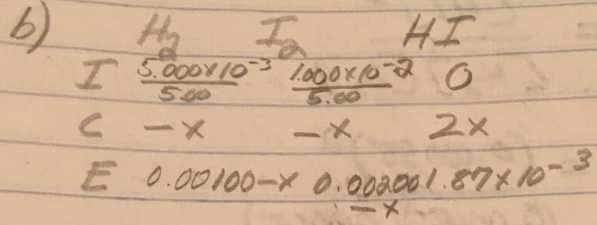 b) H₂ I₂ HI
I 5.000×10⁻³/5.00 1.000×10⁻²/5.00 0
C -x -x 2x
E 0.00100-x 0.00200 1.87×10⁻³
-x